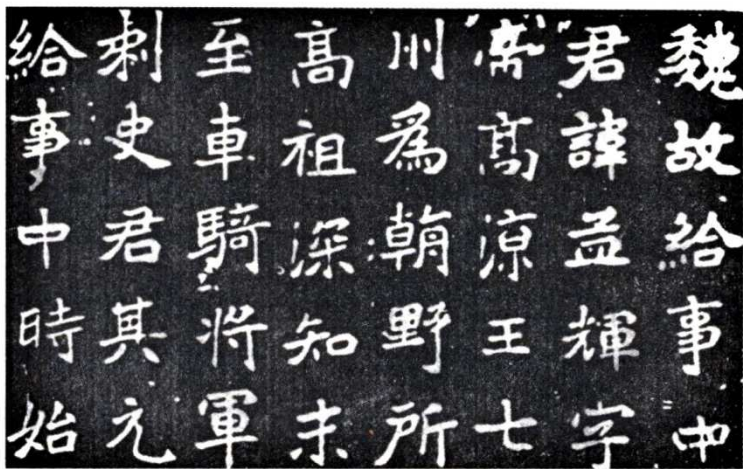 魏故給事中
君諱益輝字
高涼王七
州為朝野所
高祖深知未
至車騎將軍
刺史君其元
給事中時始